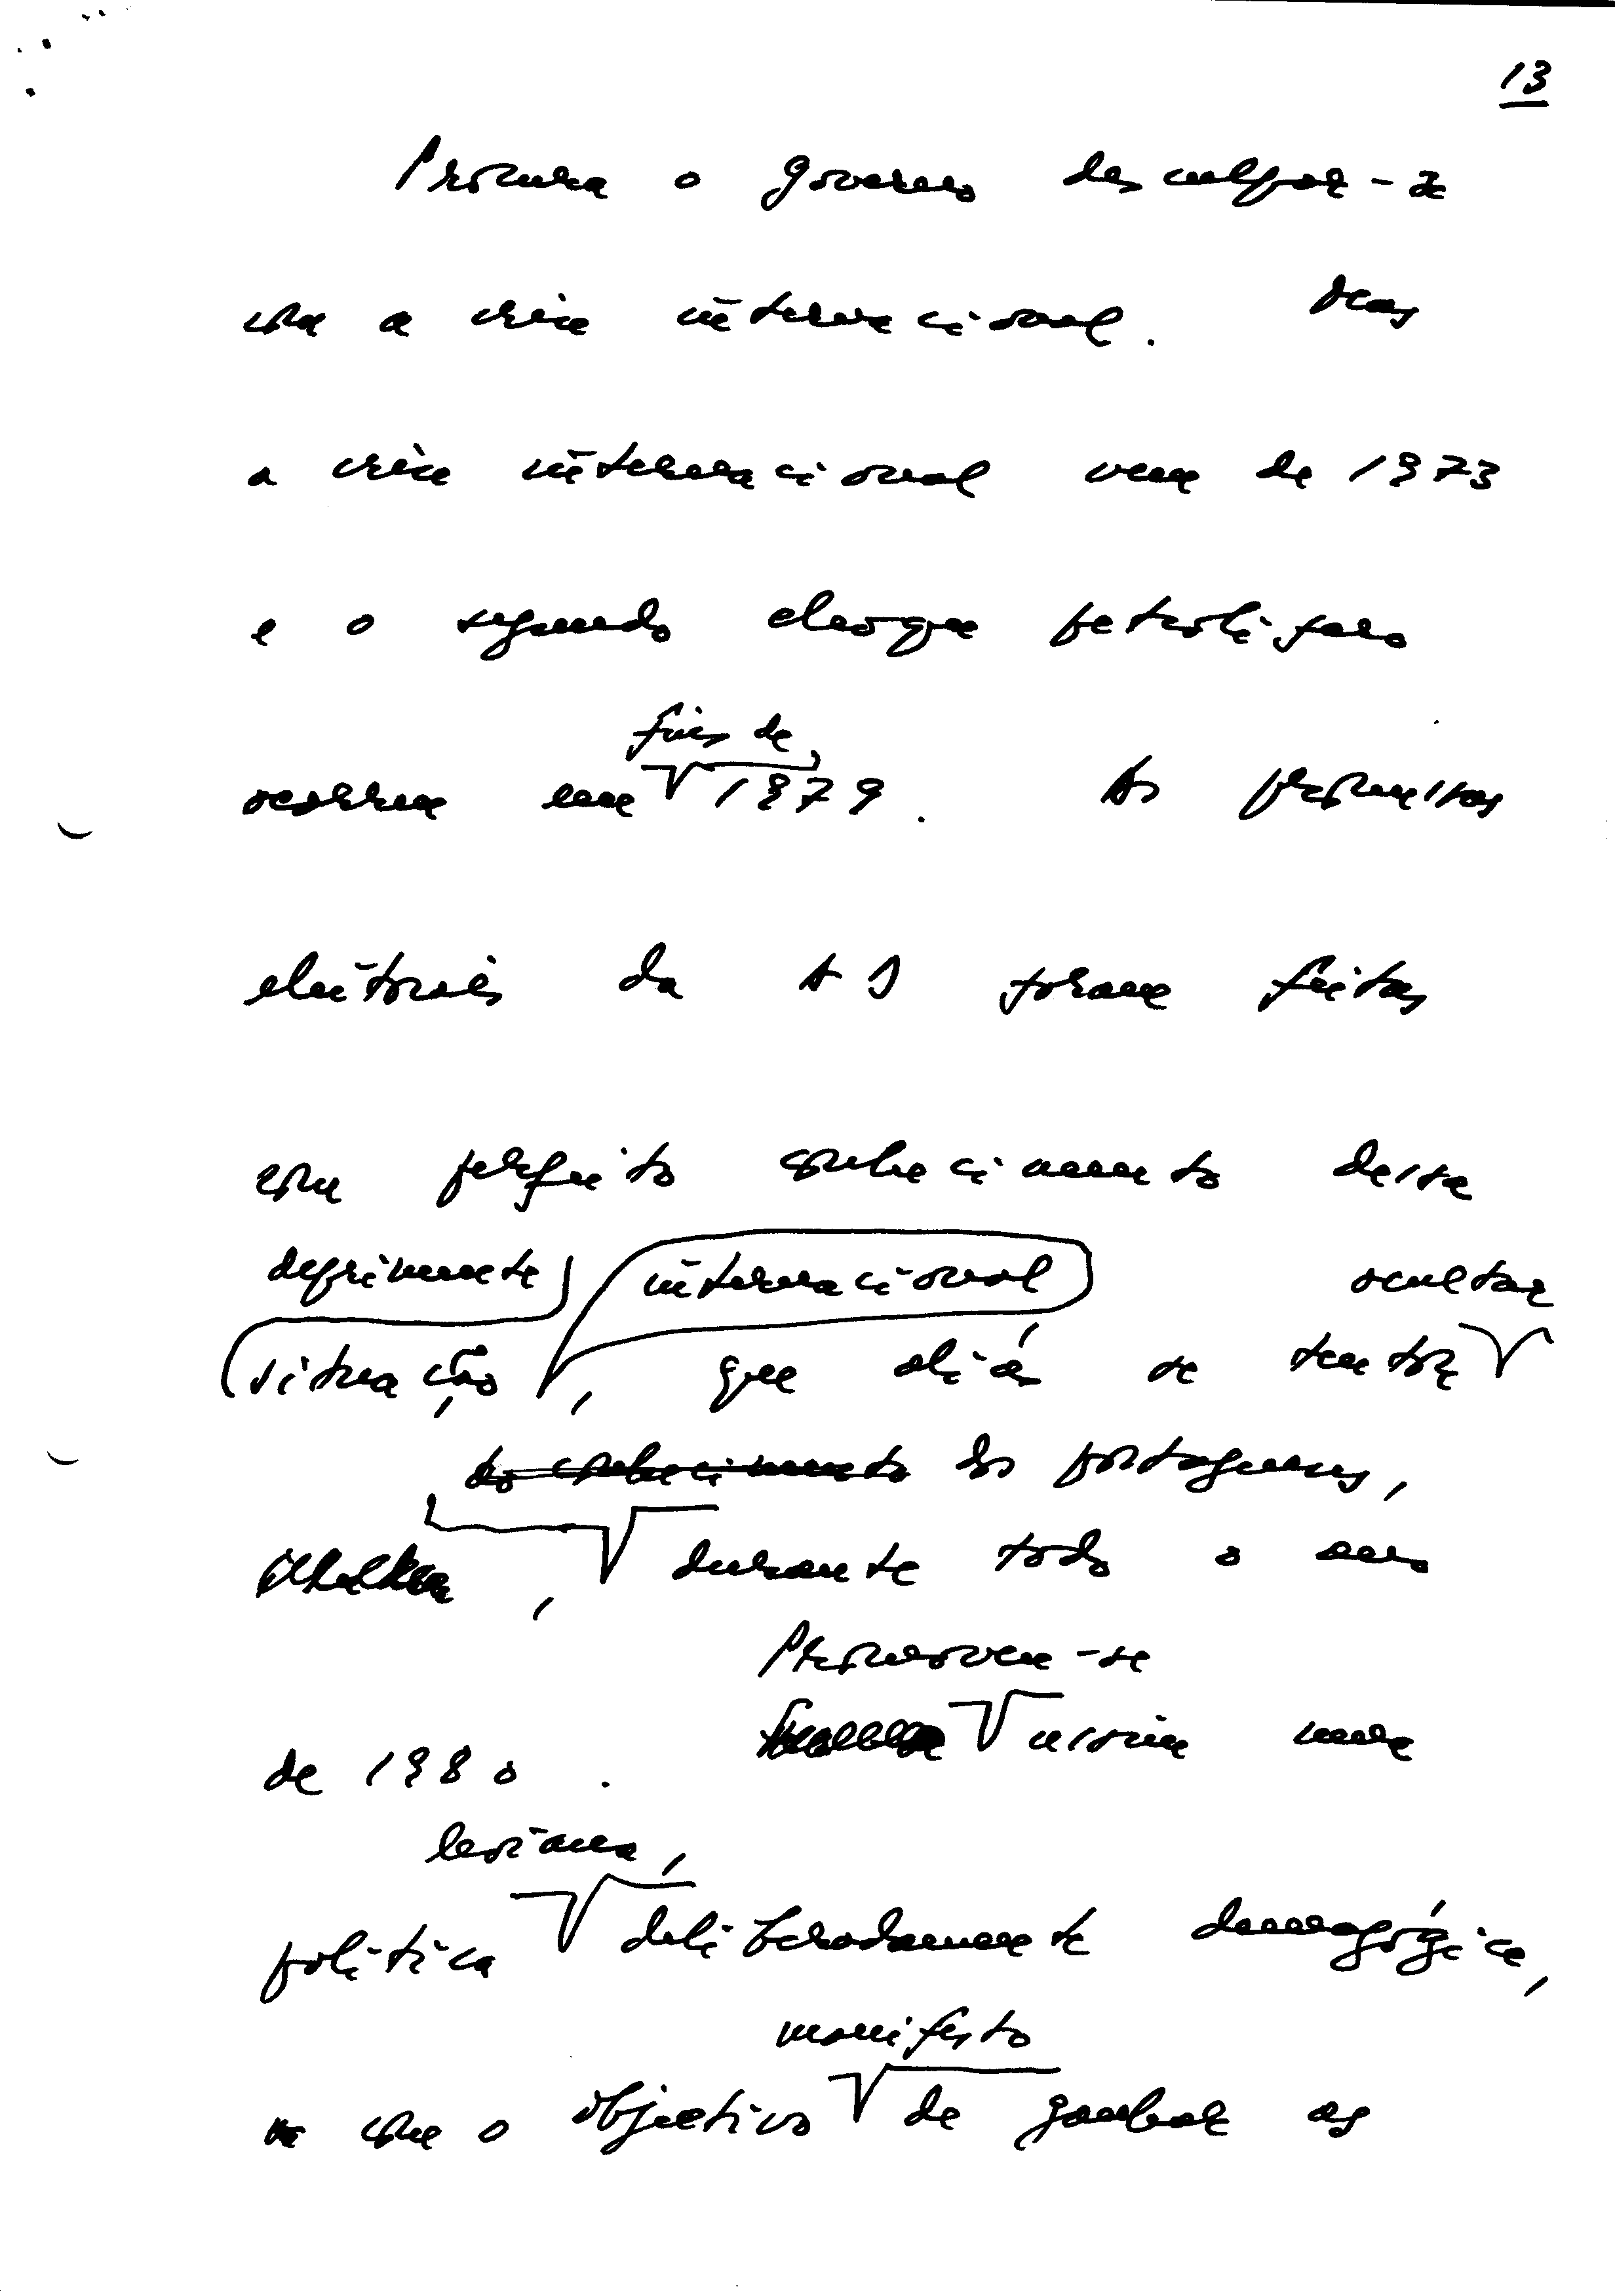 13
Procura o governo desculpar-se
com a crise internacional. Mas
a crise internacional vem de 1973
e o segundo choque petrolífero
fins de
ocorreu em 1979. As promessas
eleitorais da AD foram feitas
com perfeito conhecimento dessa
deprimente internacional ocultar
situação, que aliás se tentou
do conhecimento dos portugueses,
, durante todo o ano
Promoveu-se
de 1980. assim uma
leviana,
política deliberadamente demagógica,
manifesto
e com o objectivo de ganhar as